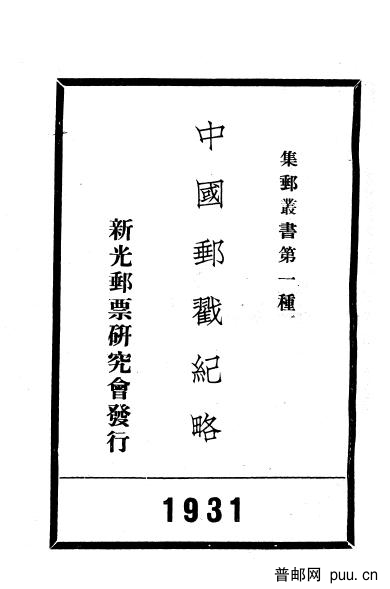 集郵叢書第一種
中國郵戳紀略
新光郵票研究會發行
1931
普邮网 puu.cn